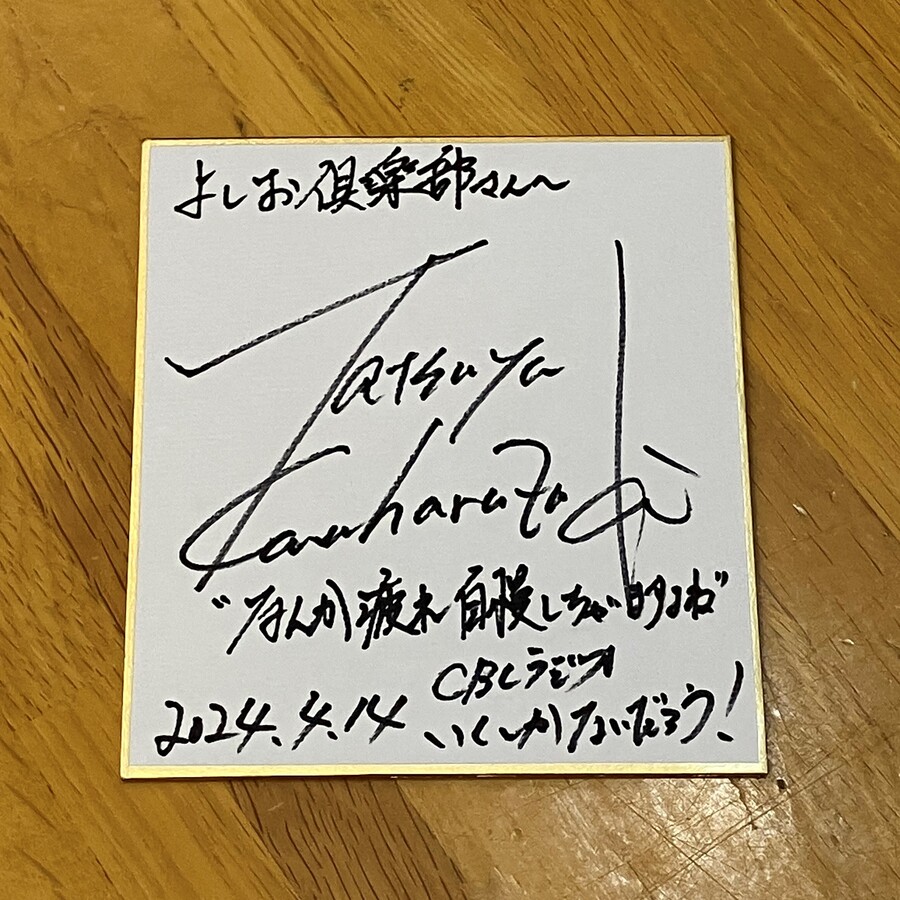 よしお倶楽部さんへ
Tatsuya
Kawaharazaki
"なんか疲れ自慢しちゃい
CBCラジオ
2024.4.14 いくしかないだろう!